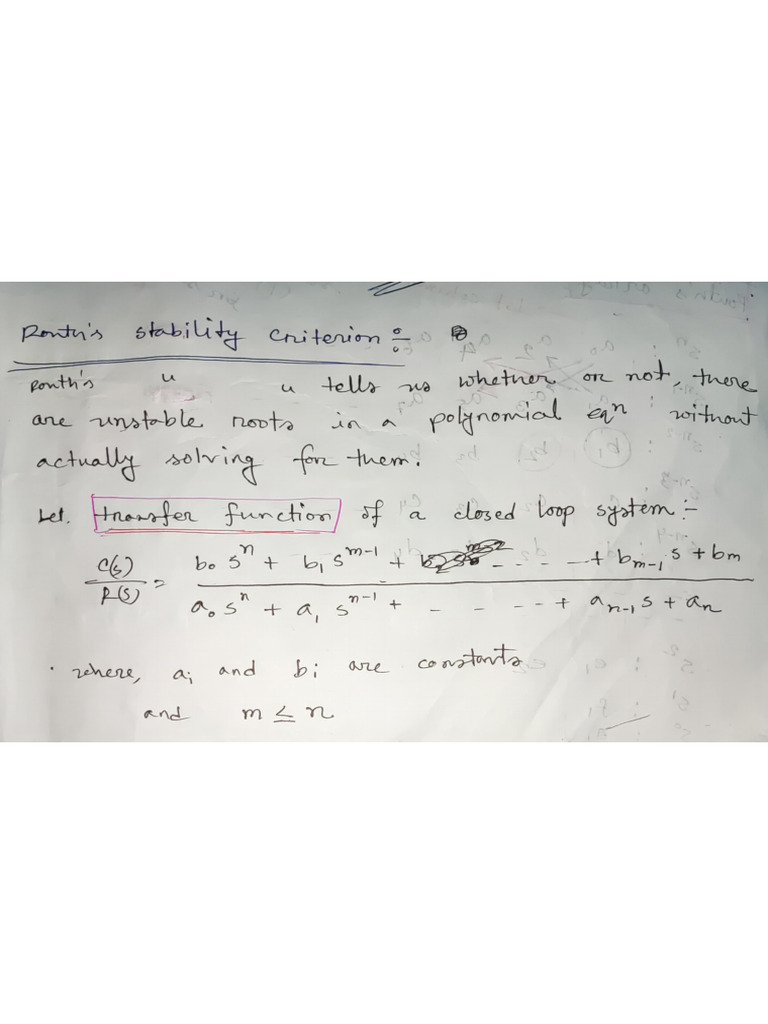 Routh's stability criterion :-
Routh's " " tells us whether or not, there
are unstable roots in a polynomial eqⁿ without
actually solving for them.
Let. transfer function of a closed loop system :-
C(s)/R(s) = (b₀ sⁿ + b₁ s^(m-1) + - - - - + b_(m-1) s + bm) / (a₀ sⁿ + a₁ s^(n-1) + - - - - + a_(n-1) s + aₙ)
· where, aᵢ and bᵢ are constants
and m ≤ n